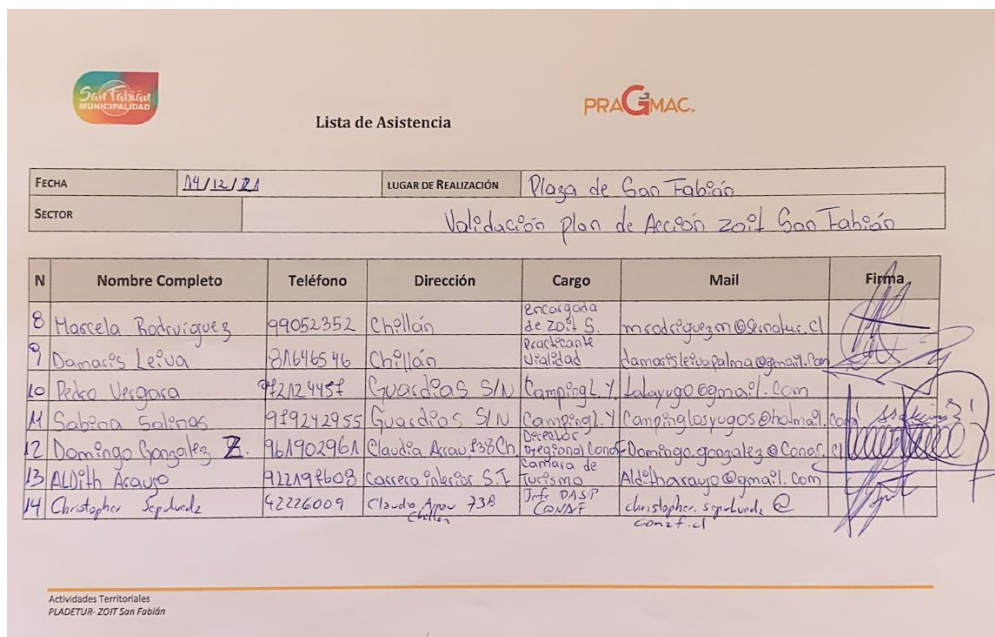 San Fabián
MUNICIPALIDAD
PRAGMAC.
Lista de Asistencia
FECHA 14/12/21 LUGAR DE REALIZACIÓN Plaza de San Fabián
SECTOR Validación plan de Acción zoit San Fabián
N Nombre Completo Teléfono Dirección Cargo Mail Firma
8 Marcela Rodriguez 99052352 Chillán encargada de zoit S. mrodriguezm@Sernatur.cl
9 Damaris Leiva 81646546 Chillán Practicante Vialidad damarisleivapalma@gmail.com
10 Pedro Vergara 972124457 Guardias S/N Camping L.Y. talayugo@gmail.com
11 Sabina Salinas 979242955 Guardias S/N Camping L.Y Campinglosyugos@hotmail.com
12 Domingo Gonzalez Z. 961902961 Claudia Arrau 738 Ch. Director Regional Conaf Domingo.gonzalez@Conaf.cl
13 ALDith Araujo Carrera interior S.F Camara de Turismo Alditharaujo@gmail.com
14 Christopher Sepulveda 42226009 Claudio Arrau 738 Chillan Jefe DASP CONAF christopher.sepulveda@conaf.cl
Actividades Territoriales
PLADETUR- ZOIT San Fabián